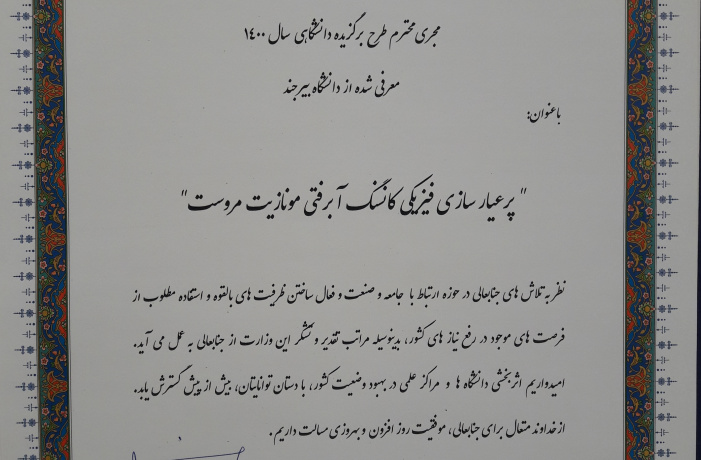 مجری محترم طرح برگزیده دانشگاهی سال ۱۴۰۰
معرفی شده از دانشگاه بیرجند
با عنوان:
" پرعیار سازی فیزیکی کانسنگ آبرفتی مونازیت مروست"
نظر به تلاش های جنابعالی در حوزه ارتباط با جامعه و صنعت و فعال ساختن ظرفیت های بالقوه و استفاده مطلوب از
فرصت های موجود در رفع نیاز های کشور، بدینوسیله مراتب تقدیر و تشکر این وزارت از جنابعالی به عمل می آید.
امیدواریم اثربخشی دانشگاه ها و مراکز علمی در بهبود وضعیت کشور، با دستان توانایتان، بیش از پیش گسترش یابد.
از خداوند متعال برای جنابعالی، موفقیت روز افزون و بهروزی مسالت داریم.